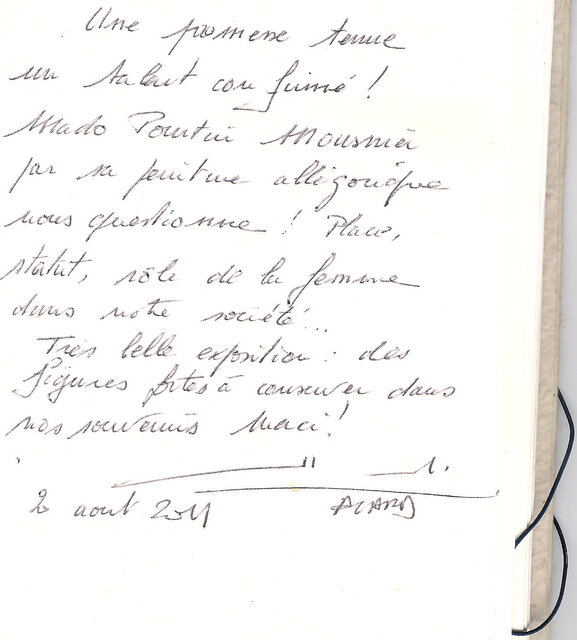 Une promesse tenue
un talent confirmé !
Mado Mousnier
par sa peinture allégorique
nous questionne ! Place,
statut, rôle de la femme
dans notre société...
Très belle exposition : des
figures fortes à conserver dans
nos souvenirs Merci !
20 août 2011